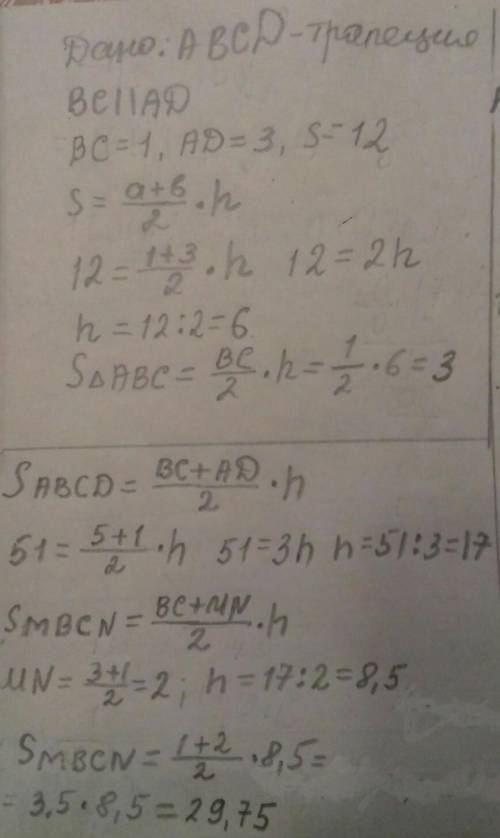 Дано: ABCD-трапеция
BC||AD
BC=1, AD=3, S=12
S = (a+b)/2 · h
12 = (1+3)/2 · h   12=2h
h = 12:2=6
S△ABC = BC/2 · h = 1/2 · 6=3
SABCD = (BC+AD)/2 · h
51 = (5+1)/2 · h   51=3h   h=51:3=17
SMBCN = (BC+MN)/2 · h
MN = (3+1)/2 = 2; h=17:2=8,5
SMBCN = (1+2)/2 · 8,5=
= 3,5·8,5=29,75